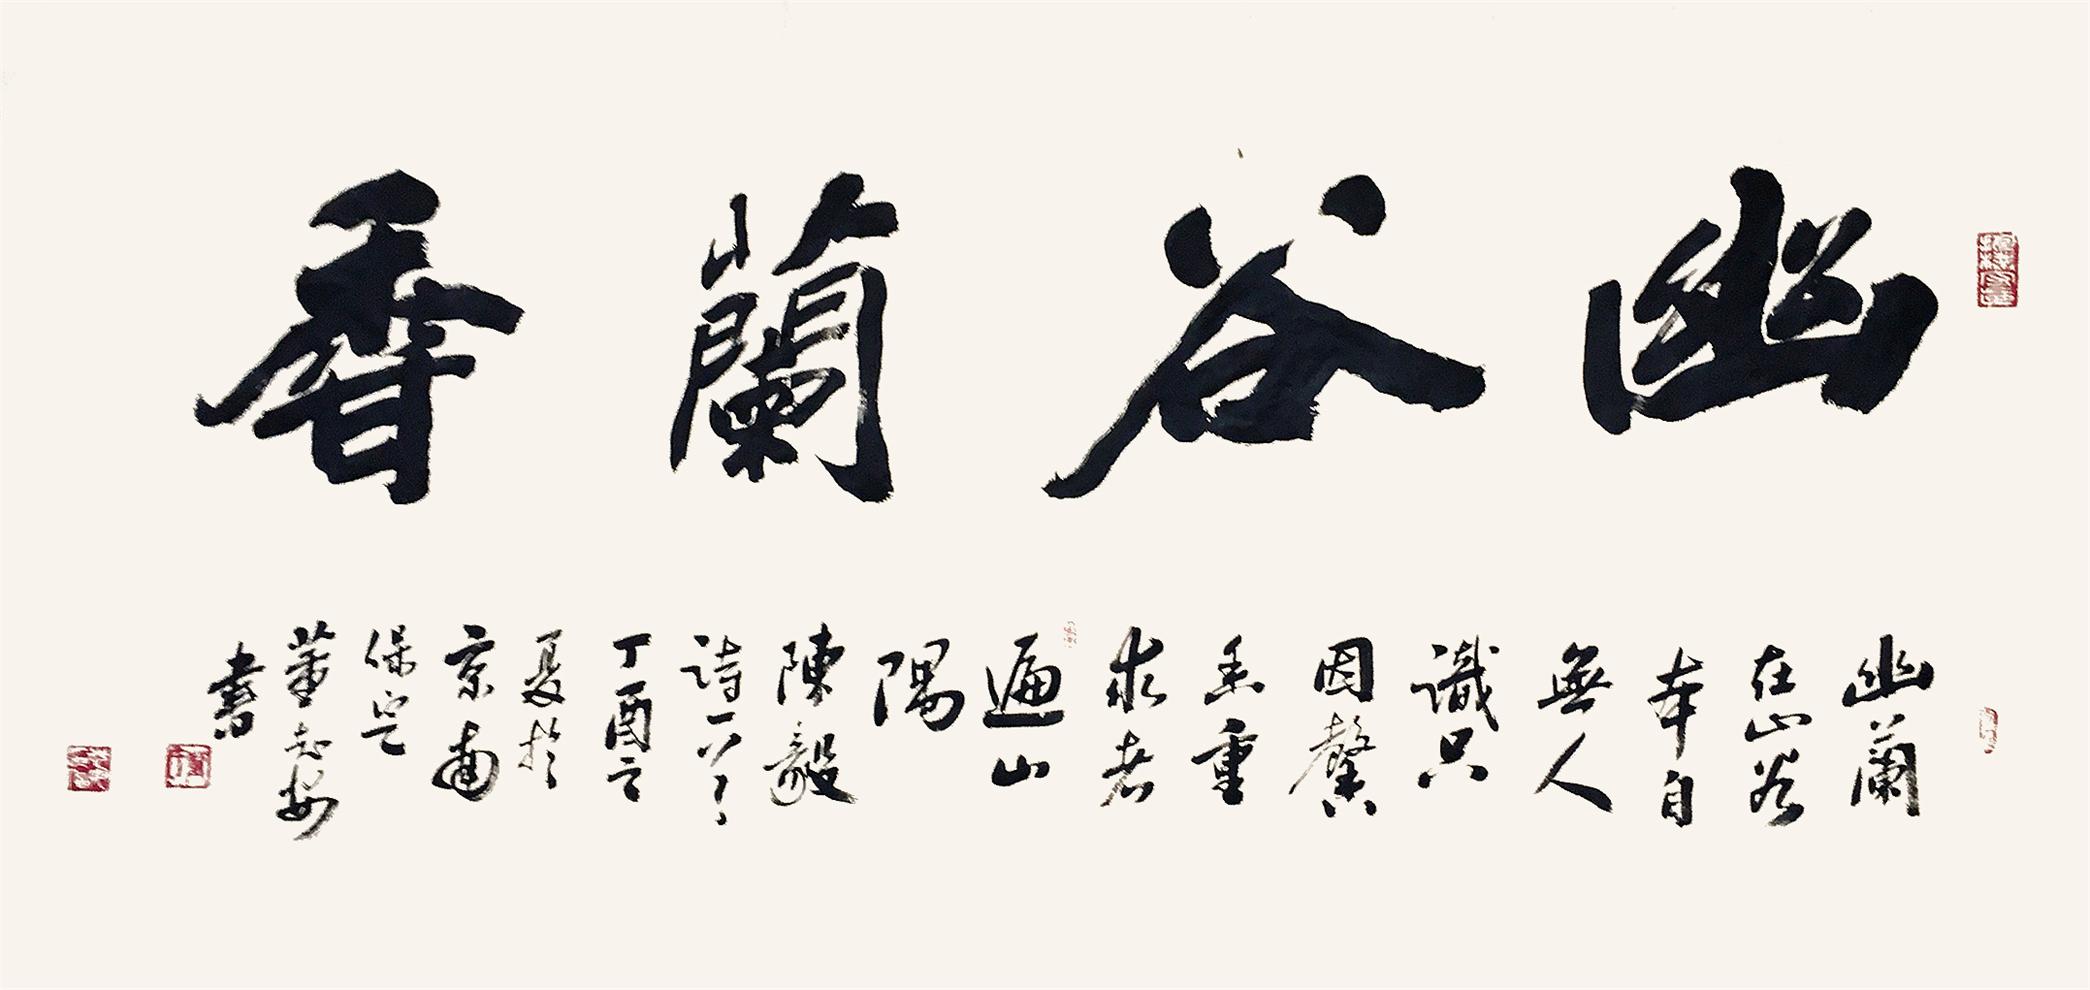 幽谷蘭香
幽蘭
在山谷
本自
無人
識只
因馨
香重
求者
遍山
隅
陳毅
詩一首
丁酉之
夏於
京南
保定
董
書